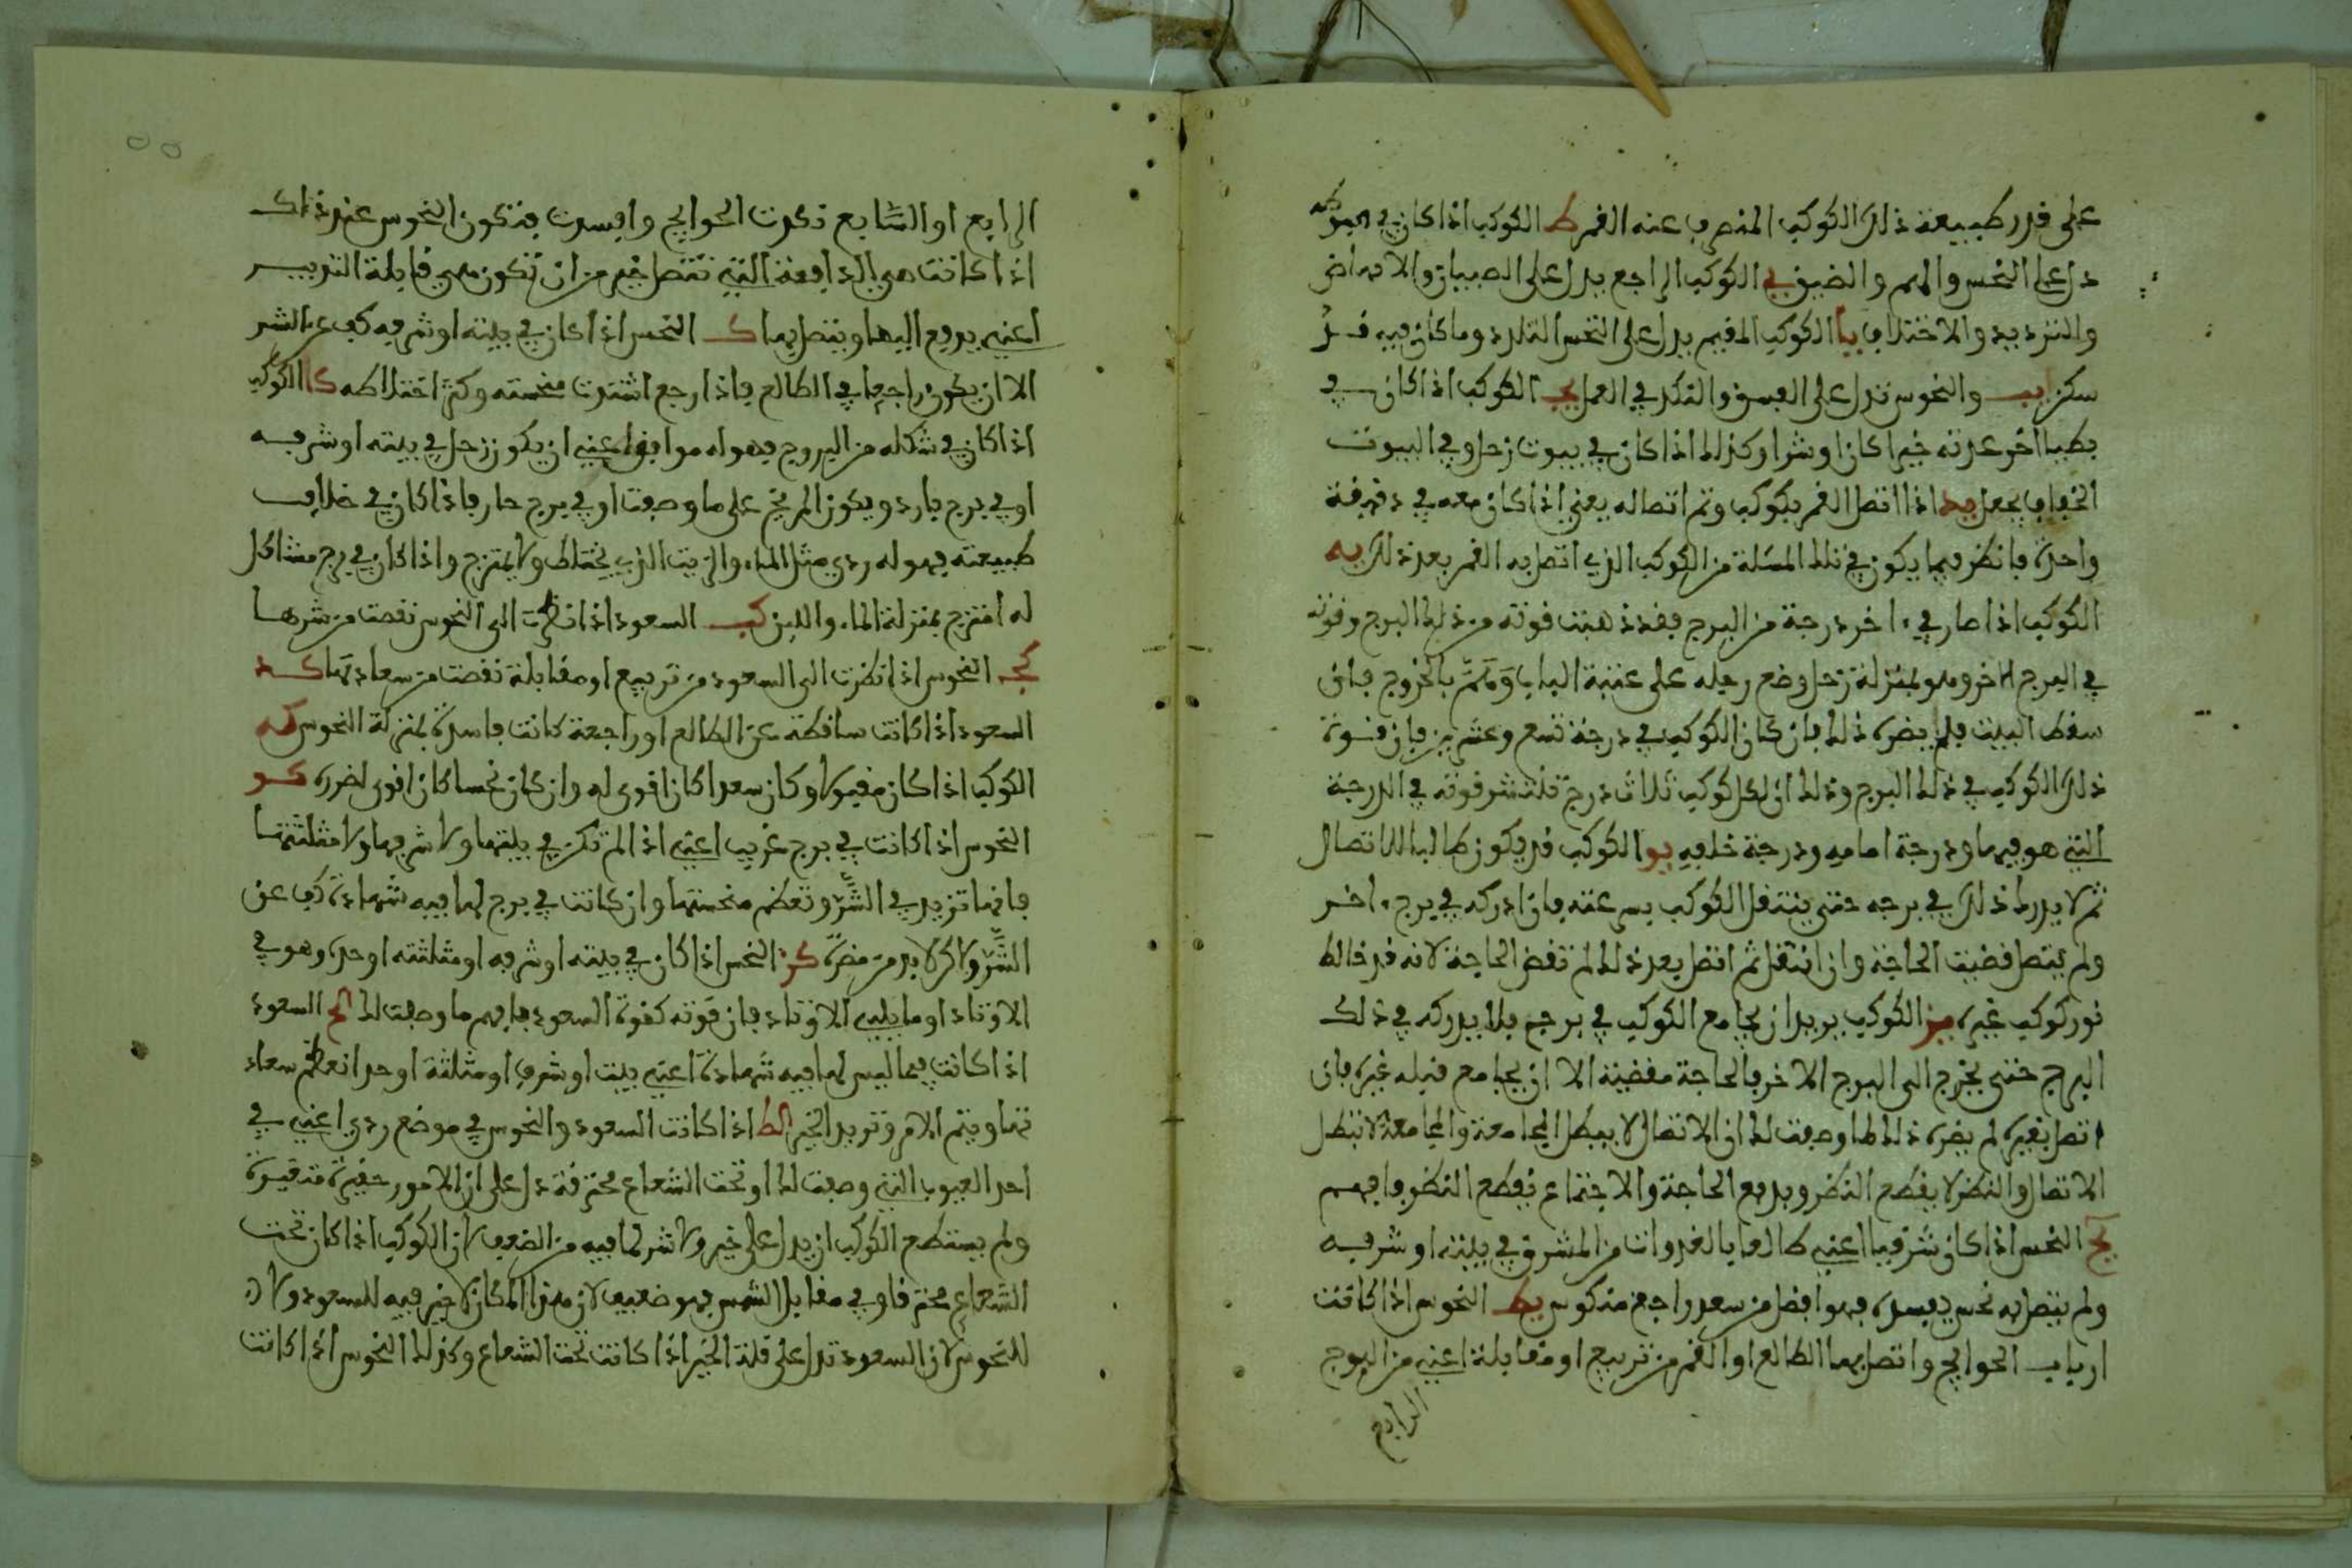 على قدر طبيعة ذلك الكوكب المنصرف عنه القمر ط الكوكب اذا كان في الهبوط
دل على النحس والهم والضيق ي الكوكب الراجع يدل على الصبيان والامراض
والترديد والاختلاف يا الكوكب المقيم يدل على النحس التلدد وما كان فيه قد
سكن يب والنحوس تدل على العسر والنكد في العمل يج الكوكب اذا كان في
بطيا اخر عدته خيرا كان او شرا وكذلك اذا كان في بيوت زحل وفي البيوت
الخفاف يعجل يد اذا اتصل القمر بكوكب وتم اتصاله يعني اذا كان معه في دقيقة
واحدة فانظر فيما يكون في تلك المسئلة من الكوكب الذي اتصل به القمر بعد ذلك يه
الكوكب اذا صار في اخر درجة من البرج فقد ذهبت قوته من ذلك البرج وقوته
في البرج الاخر وهو بمنزلة رجل وضع رجله على عتبة الباب وهم بالخروج فان
سقط البيت فلم يضره ذلك فان كان الكوكب في درجة تسع وعشرين فان قوة
ذلك الكوكب في ذلك البرج وذلك ان لكل كوكب ثلاث درج تنتشر قوته في الدرجة
التي هو فيها ودرجة امامه ودرجة خلفه يو الكوكب قد يكون طالبا للاتصال
ثم لا يدرك ذلك في برجه حتى ينتقل الكوكب بسرعته فان ادركه في برج اخر
ولم يتصل قضيت الحاجة وان انتقل ثم اتصل بعد ذلك لم تقض الحاجة لانه قد خالط
نور كوكب غيره يز الكوكب يريد ان يجامع الكوكب في برج فلا يدركه في ذلك
البرج حتى يخرج الى البرج الاخر فالحاجة مقضية الا ان يجامع قبله غيره فان
اتصل بغيره لم يضره ذلك لما وصفت لك ان الاتصال لا يبطل المجامعة والمجامعة لا تبطل
الاتصال والنظر لا يقطع النظر ويدفع الحاجة والاجتماع يقطع النظر فافهم
يح النحس اذا كان شرقيا اعني طالعا بالغدوات من المشرق في بيته او شرفه
ولم يتصل به نحس يفسده فهو افضل من سعد راجع منكوس يط النحوس اذا كانت
ارباب الحوايج واتصل بها الطالع او القمر من تربيع او مقابلة اعني من البروج
الرابع
الرابع او السابع نكدت الحوايج وافسدت فتكون النحوس عند ذلك
اذا كانت هي الدافعة التي تتصل خير من ان تكون هي قابلة التدبير
اعني يدفع اليها ويتصل بها ك النحس اذا كان في بيته او شرفه كف عن الشر
الا ان يكون راجعا في الطالع فاذا رجع اشتدت منحسته وكثر اختلاطه كا الكوكب
اذا كان في شكله من البروج فهو له موافق اعني ان يكون زحل في بيته او شرفه
او في برج بارد ويكون المريخ على ما وصفت او في برج حار فاذا كان في خلاف
طبيعته فهو له ردي مثل الماء والزيت الذي يختلط ولا يمتزج واذا كان في برج مشاكل
له امتزج بمنزلة الماء واللبن كب السعود اذا نظرت الى النحوس نقصت من شرها
كج النحوس اذا نظرت الى السعود من تربيع او مقابلة نقصت من سعادتها كد
السعود اذا كانت ساقطة عن الطالع او راجعة كانت فاسدة بمنزلة النحوس كه
الكوكب اذا كان مقبولا وكان سعدا كان اقوى له وان كان نحسا كان اقوى لضرره كو
النحوس اذا كانت في برج غريب اعني اذا لم تكن في بيتها ولا شرفها ولا مثلثتها
فانها تزيد في الشر وتعظم منحستها وان كانت في برج لها فيه شهادة كف عن
الشر ولاكن لا بد من مضرة كز النحس اذا كان في بيته او شرفه او مثلثته او حده وهو في
الاوتاد او ما يلي الاوتاد فان قوته كقوة السعود فافهم ما وصفت لك كح السعود
اذا كانت فيما ليس لها فيه شهادة اعني بيت او شرف او مثلثة او حد انعظم سعاد
تها ويتم الامر وتريد الخير كط اذا كانت السعود والنحوس في موضع ردي اعني في
احد العيوب التي وصفت لك او تحت الشعاع محترقة دل على ان الامور حقيرة متغيرة
ولم يستطع الكوكب ان يدل على خير ولا شر لما فيه من الضعف لان الكوكب اذا كان تحت
الشعاع محترقا وفي مقابلة الشمس فهو ضعيف لان هذا المكان لا خير فيه للسعود ولا
للنحوس لان السعود تدل على قلة الخير اذا كانت تحت الشعاع وكذلك النحوس اذا كانت